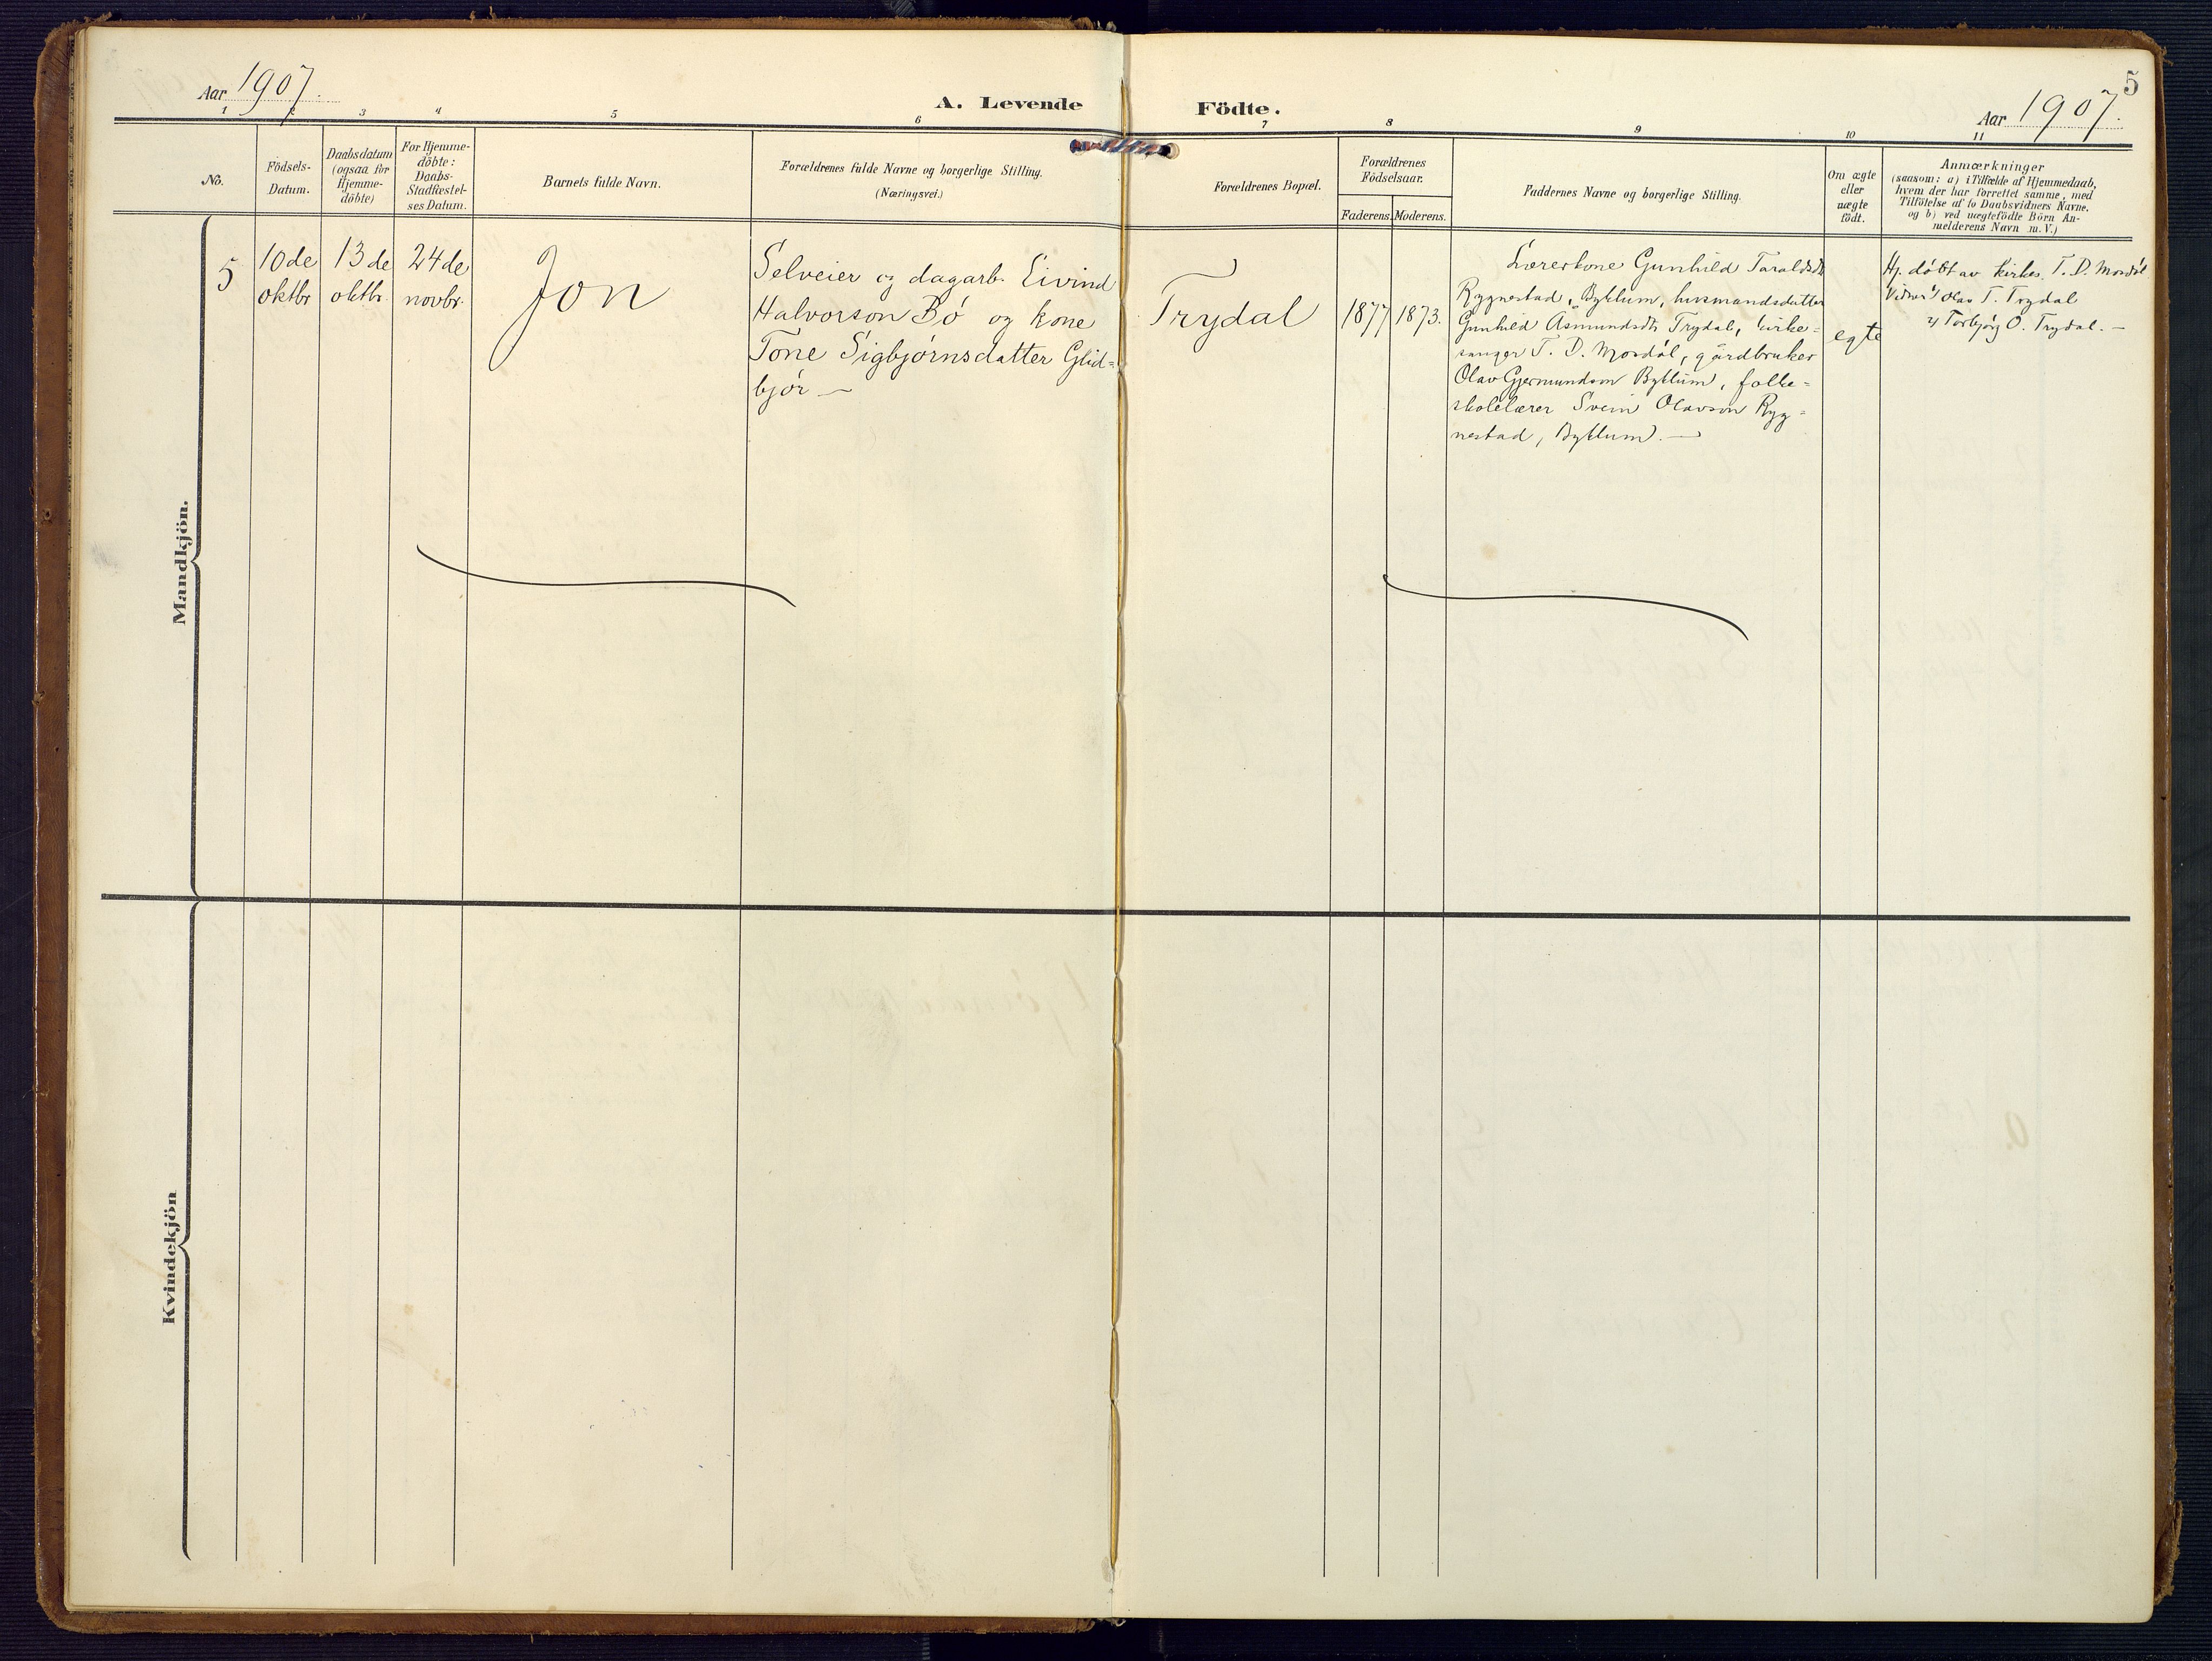 5
Aar 1907.
A. Levende Födte.
Aar 1907.
1 2 3 4 5 6 7 8 9 10 11
No.
Födsels-
Datum.
Daabsdatum
(ogsaa for
Hjemme-
döbte)
For Hjemme-
döbte:
Daabs-
Stadfæstel-
ses Datum.
Barnets fulde Navn.
Forældrenes fulde Navne og borgerlige Stilling.
(Næringsvei.)
Forældrenes Bopæl.
Forældrenes
Födselsaar.
Faderens. Moderens.
Faddernes Navne og borgerlige Stilling.
Om ægte
eller
uægte
födt.
Anmærkninger
(saasom: a) i Tilfælde af Hjemmedaab,
hvem der har forrettet samme, med
Tilföielse af to Daabsvidners Navne.
og b) ved uægtefödte Börn An-
melderens Navn m. V.)
Mandkjön.
5
10de
oktbr
13de
oktbr.
24de
novbr.
Jon
Selveier og dagarb. Eivind
Halvorson Bö og kone
Tone Sigbjørnsdatter Glid=
björ —
Trydal
1877 1873.
Lærerkone Gunhild Taraldsdtr
Rygnestad, Byklum, husmandsdatter
Gunhild Åsmundsdtr Trydal, kirke=
sanger T. D. Mosdöl, gårdbruker
Olav Gjermundson Byklum, folke=
skolelærer Svein Olavson Ryg=
nestad, Byklum. —
egte
Hj. döbt av kirkes. T. D. Mosdöl
Vidner: 1) Olav T. Trydal
2) Torbjørg O. Trydal. —
Kvindekjön